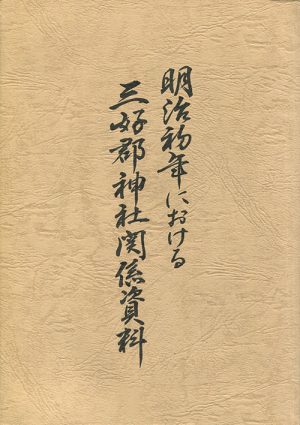 明治初年における
三好郡神社関係資料